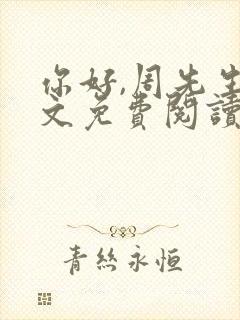 你好,周先生
文免費閱讀
青絲永恒